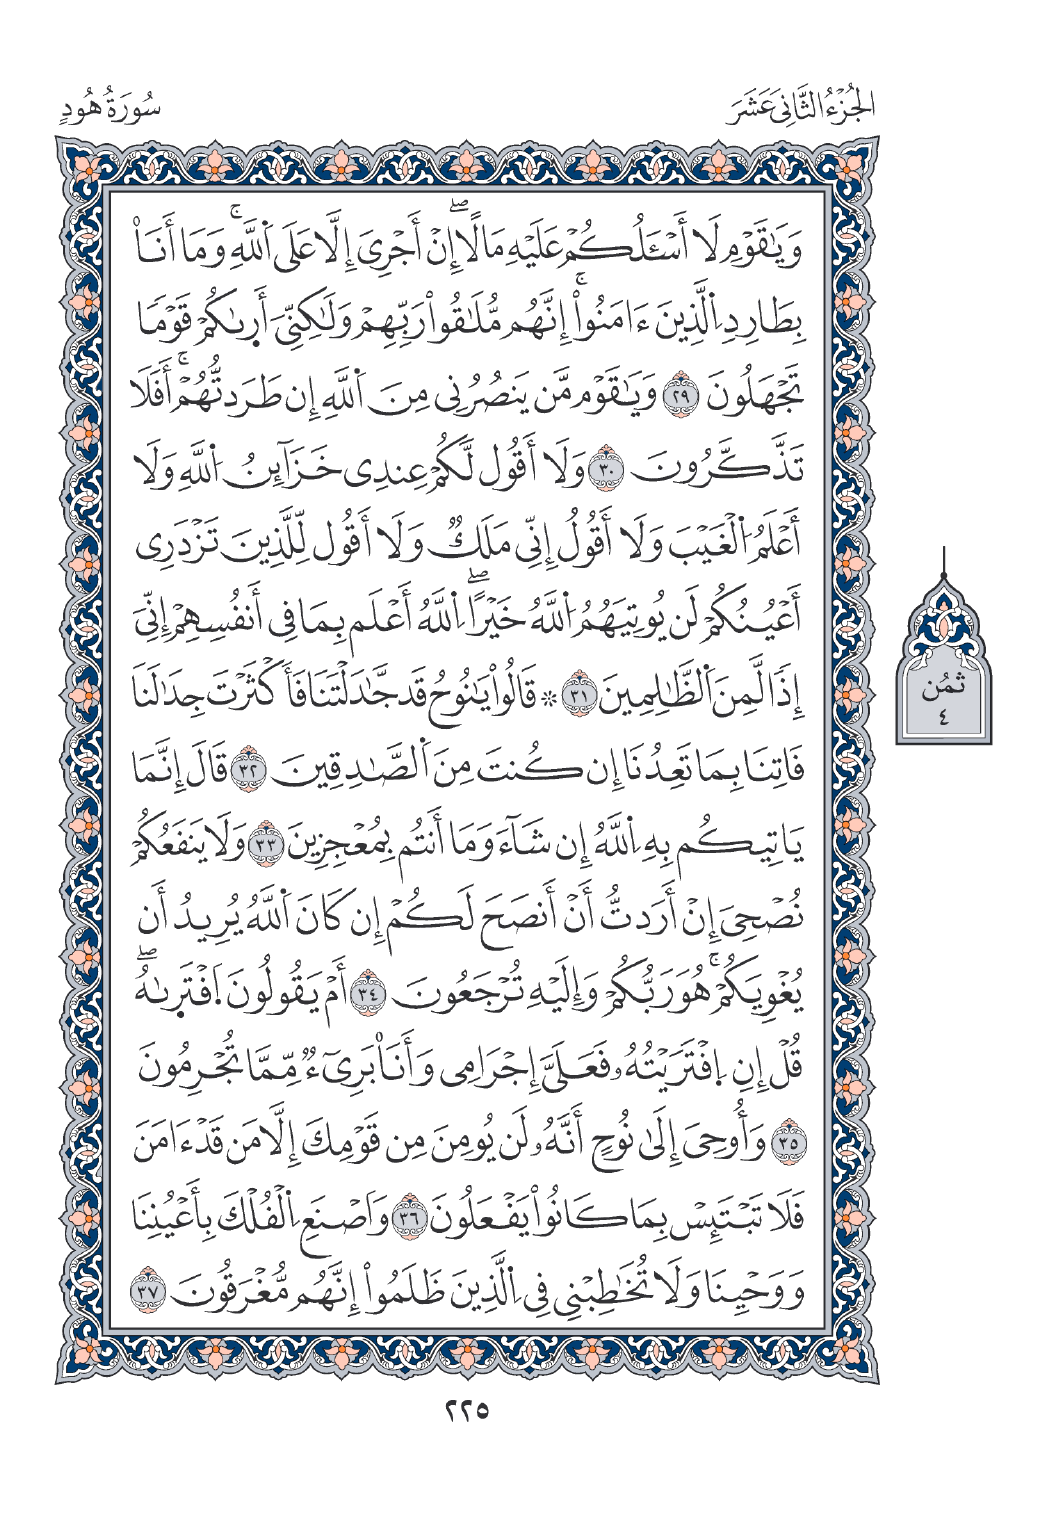 الجُزْءُ الثَّانِي عَشَرَ
سُورَةُ هُودٍ
وَيَٰقَوۡمِ لَآ أَسۡـَٔلُكُمۡ عَلَيۡهِ مَالًاۖ إِنۡ أَجۡرِيَ إِلَّا عَلَى اَ۬للَّهِۚ وَمَآ أَنَا۠
بِطَارِدِ اِ۬لَّذِينَ ءَامَنُوٓاْۚ إِنَّهُم مُّلَٰقُواْ رَبِّهِمۡ وَلَٰكِنِّيَ أَر۪ىٰكُمۡ قَوۡمٗا
تَجۡهَلُونَ ٢٩ وَيَٰقَوۡمِ مَن يَنصُرُنِي مِنَ اَ۬للَّهِ إِن طَرَدتُّهُمۡۚ أَفَلَا
تَذَّكَّرُونَ ٣٠ وَلَآ أَقُول لَّكُمۡ عِندِي خَزَآئِنُ اُ۬للَّهِ وَلَآ
أَعۡلَمُ اُ۬لۡغَيۡبَ وَلَآ أَقُولُ إِنِّي مَلَكٞ وَلَآ أَقُول لِّلَّذِينَ تَزۡدَرِيٓ
أَعۡيُنُكُمۡ لَن يُوتِيَهُمُ اُ۬للَّهُ خَيۡرًاۖ اِ۬للَّهُ أَعۡلَم بِمَا فِيٓ أَنفُسِهِمۡ إِنِّيَ
إِذٗا لَّمِنَ اَ۬لظَّٰلِمِينَ ٣١ ۞ قَالُواْ يَٰنُوحُ قَد جَّٰدَلۡتَنَا فَأَكۡثَرۡتَ جِدَٰلَنَا
فَاتِنَا بِمَا تَعِدُنَآ إِن كُنتَ مِنَ اَ۬لصَّٰدِقِينَ ٣٢ قَالَ إِنَّمَا
يَاتِيكُم بِهِ اِ۬للَّهُ إِن شَآءَ وَمَآ أَنتُم بِمُعۡجِزِينَ ٣٣ وَلَا يَنفَعُكُمۡ
نُصۡحِيَ إِنۡ أَرَدتُّ أَنۡ أَنصَحَ لَكُمۡ إِن كَانَ اَ۬للَّهُ يُرِيدُ أَن
يُغۡوِيَكُمۡۚ هُوَ رَبُّكُمۡ وَإِلَيۡهِ تُرۡجَعُونَ ٣٤ أَمۡ يَقُولُونَ اَ۪فۡتَر۪ىٰهُۖ
قُلۡ إِنِ اِ۪فۡتَرَيۡتُهُۥ فَعَلَيَّ إِجۡرَامِي وَأَنَا۠ بَرِيٓءٞ مِّمَّا تُجۡرِمُونَ
٣٥ وَأُوحِيَ إِلَىٰ نُوحٍ أَنَّهُۥ لَن يُومِنَ مِن قَوۡمِكَ إِلَّا مَن قَدۡ ءَامَنَ
فَلَا تَبۡتَئِسۡ بِمَا كَانُواْ يَفۡعَلُونَ ٣٦ وَاَصۡنَعِ اِ۬لۡفُلۡكَ بِأَعۡيُنِنَا
وَوَحۡيِنَا وَلَا تُخَٰطِبۡنِي فِي اِ۬لَّذِينَ ظَلَمُوٓاْ إِنَّهُم مُّغۡرَقُونَ ٣٧
ثُمُن
٤
٢٢٥